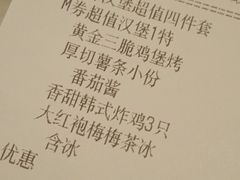 汉堡超值四件套
M券超值汉堡1特
黄金三脆鸡堡烤
厚切薯条小份
番茄酱
香甜韩式炸鸡3只
大红袍梅梅茶冰
含冰
优惠